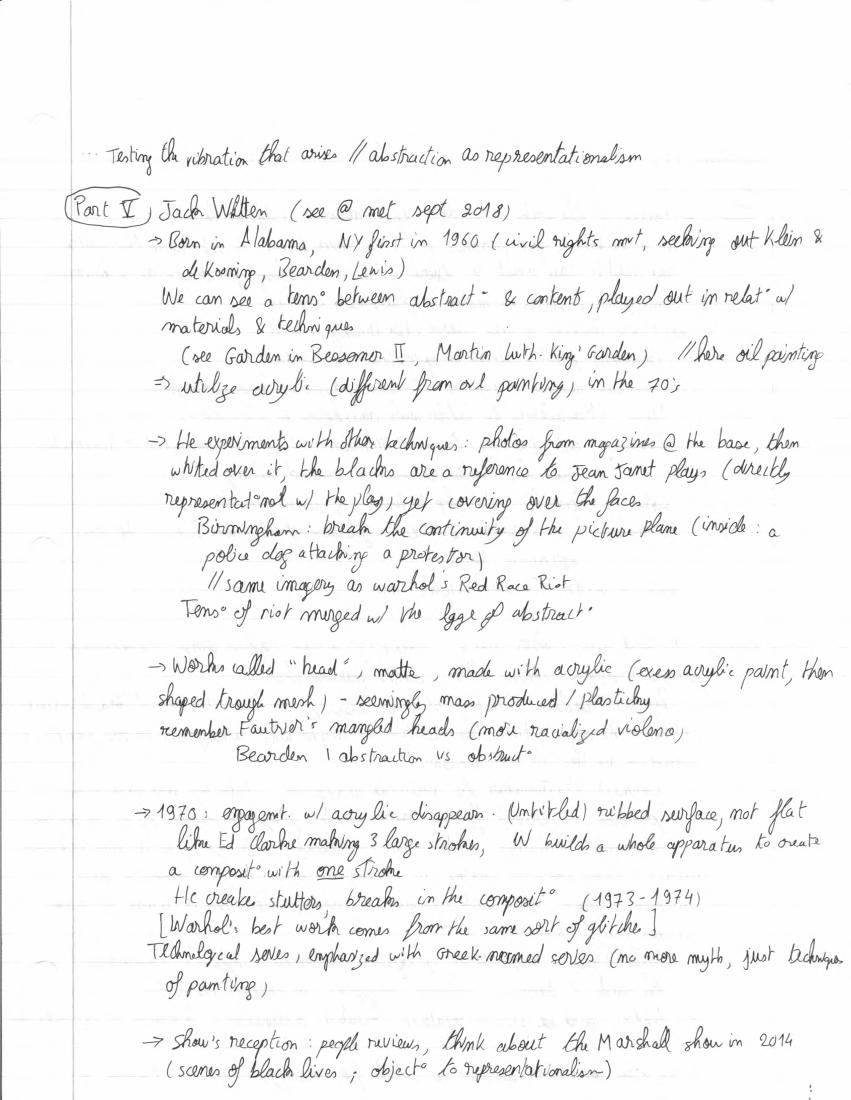 ... Testing the vibration that arises // abstraction as representationalism
Part V) Jack Whitten (see @ met sept 2018)
→ Born in Alabama, NY first in 1960 (civil rights mvt, seeking out Klein &
de Kooning, Bearden, Lewis)
We can see a tens° between abstract° & content, played out in relat° w/
materials & techniques
(see Garden in Bessemer II, Martin Luth. King' Garden) // here oil painting
⇒ utilize acrylic (different from oil painting) in the 70's
→ He experiments with other techniques: photos from magazines @ the base, then
whited over it, the blacks are a reference to Jean Janet plays (directly
representat°nal w/ the play) yet covering over the faces
Birmingham: break the continuity of the picture plane (inside: a
police dog attacking a protestor)
// same imagery as warhol's Red Race Riot
Tens° of riot merged w/ the lgge of abstract°
→ Works called "head", matte, made with acrylic (excess acrylic paint, then
shaped trough mesh) - seemingly mass produced / plasticky
remember Fautrier's mangled heads (more racialized violence)
Bearden | abstraction vs obstruct°
→ 1970: engagemt. w/ acrylic disappears. (Untitled) ribbed surface, not flat
like Ed Clarke making 3 large strokes, W builds a whole apparatus to create
a composit° with one stroke
He creates stutters, breaks in the composit° (1973-1974)
[Warhol's best work comes from the same sort of glitches]
Technological series, emphasized with Greek-named series (no more myth, just techniques
of painting)
→ Show's reception: people reviews, think about the Marshall show in 2014
(scenes of black lives; object° to representationalism)